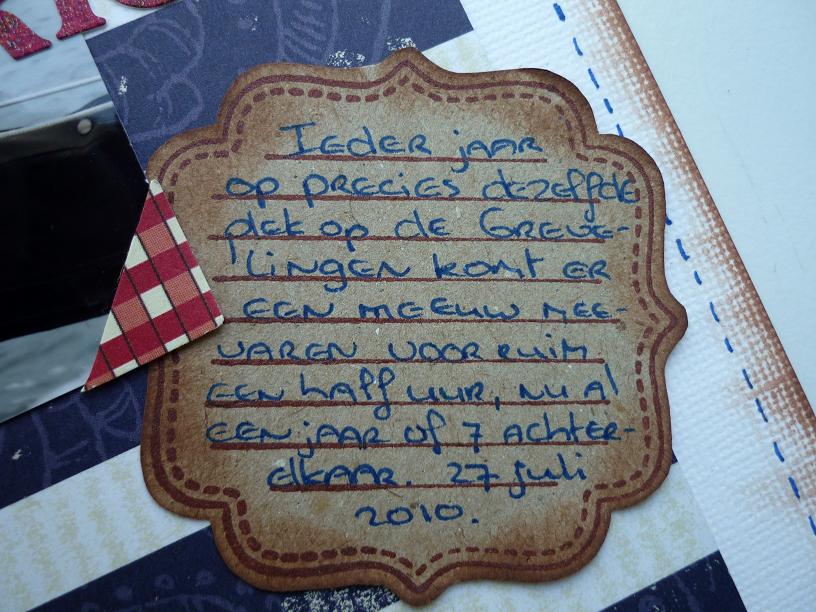 Ieder jaar
op precies dezelfde
plek op de Greve-
lingen komt er
een meeuw mee-
varen voor ruim
een half uur, nu al
een jaar of 7 achter-
elkaar. 27 juli
2010.